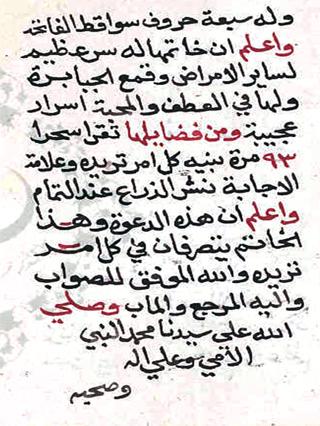 وله سبعة حروف سواقط الفاتحة
واعلم ان خاتمها له سر عظيم
لساير الامراض وقمع الجبابرة
ولها في العطف والمحبة اسرار
عجيبة ومن فضايلها تقرا سحرا
٩٣ مرة بنية كل امر تريده وعلامة
الاجابة ننش الذراع عند التمام
واعلم ان هذه الدعوة وهذا
الخاتم يتصرفان في كل امر
تريده والله الموفق للصواب
واليه المرجع والماب وصلي
الله على سيدنا محمد النبي
الأمي وعلى اله
وصحبه